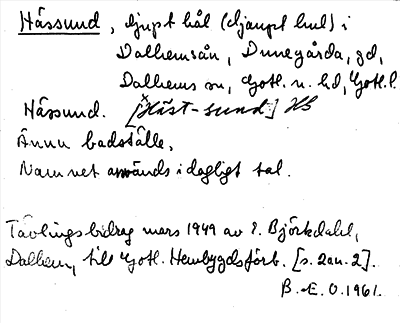 Hässund, djupt hål (djaupt hul) i
Dalhemsån, Dunegårda, gd,
Dalhems sn, Gotl. n. hd, Gotl. l.
Hässund. [*Häst-sund] HS
Ännu badställe.
Namnet används i dagligt tal.
Tävlingsbidrag mars 1949 av P. Björkdahl,
Dalhem, till Gotl. Hembygdsförb. [s. 2 an. 2].
B. E. O. 1961.